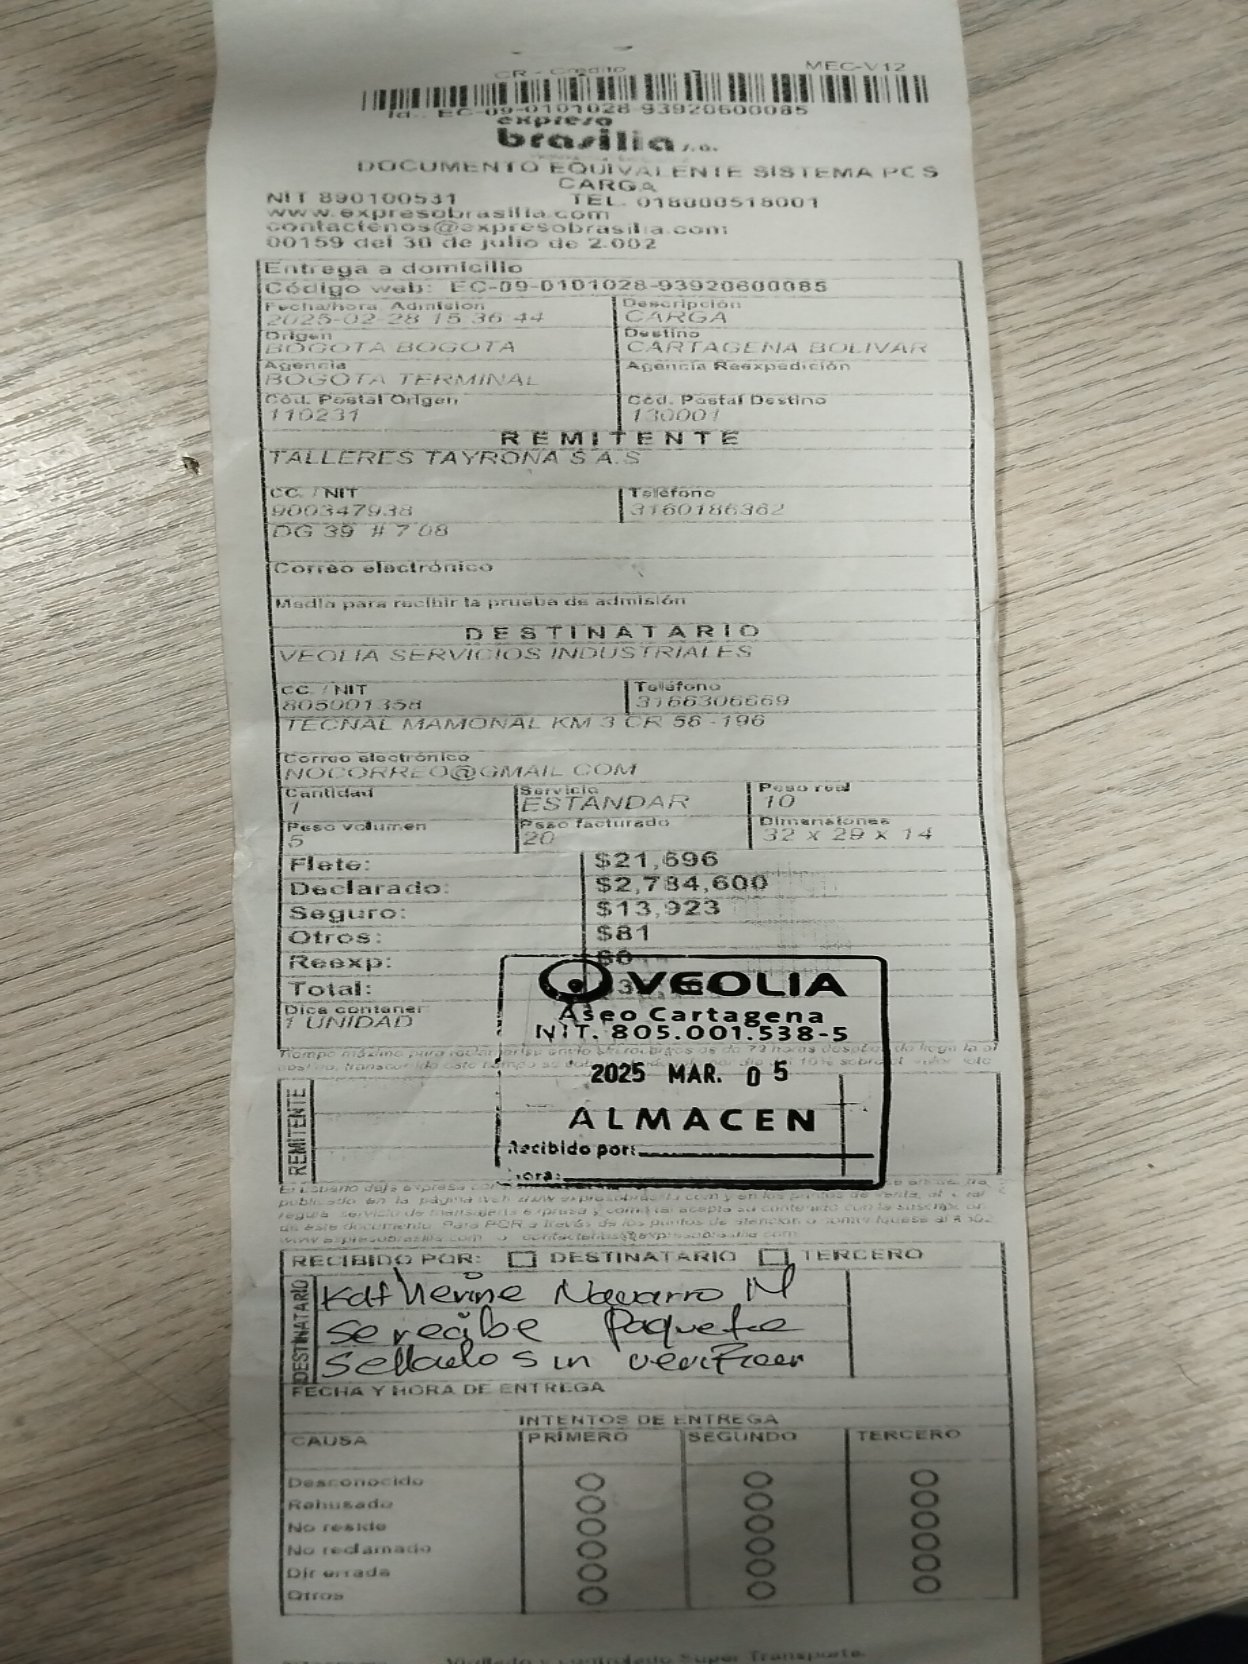 CR - Crédito MEC-V12
Id.: EC-09-0101028-93920600085
expreso
brasilia s.a.
DOCUMENTO EQUIVALENTE SISTEMA POS
CARGA
NIT 890100531 TEL. 018000518001
www.expresobrasilia.com
contactenos@expresobrasilia.com
00159 del 30 de julio de 2.002
Entrega a domicilio
Código web: EC-09-0101028-93920600085
Fecha/hora Admisión Descripción
2025-02-28 15:36:44 CARGA
Origen Destino
BOGOTA BOGOTA CARTAGENA BOLIVAR
Agencia Agencia Reexpedición
BOGOTA TERMINAL
Cód. Postal Origen Cód. Postal Destino
110231 130001
REMITENTE
TALLERES TAYRONA S.A.S
CC. / NIT Teléfono
900347938 3160186362
DG 39 # 7 08
Correo electrónico
Media para recibir la prueba de admisión
DESTINATARIO
VEOLIA SERVICIOS INDUSTRIALES
CC. / NIT Teléfono
805001358 3166306669
TECNAL MAMONAL KM 3 CR 56 -196
Correo electrónico
NOCORREO@GMAIL.COM
Cantidad Servicio Peso real
1 ESTANDAR 10
Peso volumen Peso facturado Dimensiones
5 20 32 x 29 x 14
Flete: $21,696
Declarado: $2,784,600
Seguro: $13,923
Otros: $81
Reexp: $0
Total:
Dice contener
1 UNIDAD
VEOLIA
Aseo Cartagena
NIT. 805.001.538-5
2025 MAR. 05
ALMACEN
Recibido por:
Hora:
REMITENTE
publicado en la página web www.expresobrasilia.com y en los puntos de venta, el cual
regula servicio de mensajería expresa y
de este documento. Para PQR a través de los puntos de atención o
www.expresobrasilia.com o contactenos@expresobrasilia.com
RECIBIDO POR: DESTINATARIO TERCERO
DESTINATARIO
Katherine Navarro M
se recibe Paquete
sellado sin verificar
FECHA Y HORA DE ENTREGA
INTENTOS DE ENTREGA
CAUSA PRIMERO SEGUNDO TERCERO
Desconocido
Rehusado
No reside
No reclamado
Dir errada
Otros
Vigilado y controlado Super Transporte.